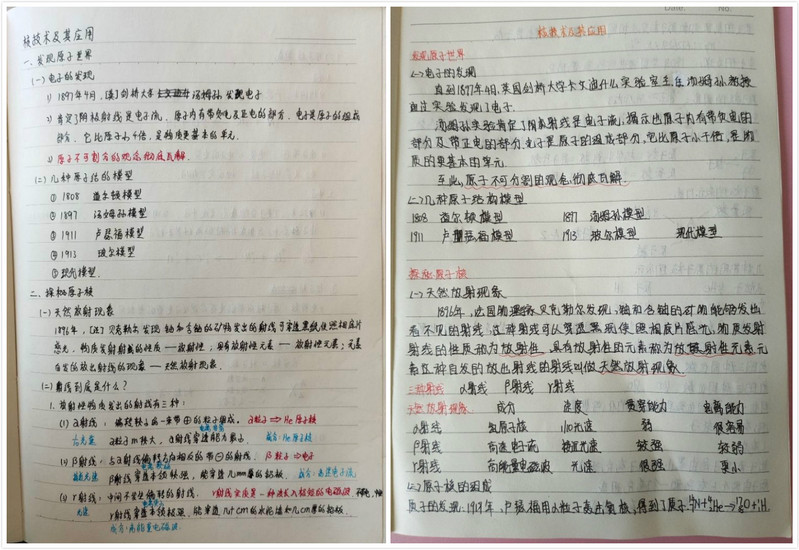 核技术及其应用
一、发现原子世界
(一)电子的发现
1) 1897年4月,[英]剑桥大学 汤姆孙发现电子
2) 肯定了阴极射线是电子流、原子内有带负电及正电的部分、电子是原子的组成
部分、它比原子小千倍,是物质更基本的单元.
3) 原子不可分割的观念彻底瓦解.
(二)几种原子结构模型
① 1808 道尔顿模型
② 1897 汤姆孙模型
③ 1911 卢瑟福模型
④ 1913 玻尔模型
⑤ 现代模型.
二、探秘原子核
(一)天然放射现象
1896年,[法]贝克勒尔发现铀和含铀的矿物发出的射线可穿透黑纸使照相底片
感光、物质发射射线的性质——放射性,具有放射性元素——放射性元素;元素
自发的放出射线的现象——天然放射现象.
(二)射线到底是什么?
1. 放射性物质发出的射线有三种:
(1) α射线: 偏转较小的一束带⊕的粒子组成. α粒子⇒He原子核
α粒子m较大,α射线穿透能力最小. 成分:He原子核
(2) β射线: 与α射线偏转方向相反的带⊖的射线. β粒子⇒电子
β射线穿透本领较强,能穿透几mm厚的铝板. 成分:高速电子流
(3) γ射线: 中间不发生偏转的射线. γ射线实质是一种波长极短的电磁波
光速 γ射线穿透本领极强,能穿透几十cm的水泥墙和几cm厚的铅板.
成分:高能量电磁波
Date. No.
核技术及其应用
发现原子世界
(一)电子的发现
直到1897年4月,英国剑桥大学卡文迪什实验室主任汤姆孙教授
通过实验发现了电子.
汤姆孙实验肯定了阴极射线是电子流,揭示出原子内有带负电的
部分及带正电的部分,电子是原子的组成部分,它比原子小千倍,是物
质的更基本的单元.
至此,原子不可分割的观念彻底瓦解.
(二)几种原子结构模型
1808 道尔顿模型 1897 汤姆孙模型
1911 卢瑟福模型 1913 玻尔模型 现代模型
探秘原子核
(一)天然放射现象
1896年,法国物理学家贝克勒尔发现,铀和含铀的矿物能够发出
看不见的射线,这种射线可以穿透黑纸使照相底片感光,物质发射
射线的性质称为放射性,具有放射性的元素称为放射性元素,元
素这种自发的放出射线的现象叫做天然放射现象.
三种射线 α射线 β射线 γ射线
天然放射现象 成分 速度 贯穿能力 电离能力
α射线 氦原子核 1/10光速 弱 很容易
β射线 高速电子流 接近光速 较强 较弱
γ射线 高能量电磁波 光速 很强 更小
(二)原子核的组成
质子的发现:1919年,卢瑟福用α粒子轰击氮核,得到了质子. ¹⁴₇N+⁴₂He→¹⁷₈O+¹₁H.